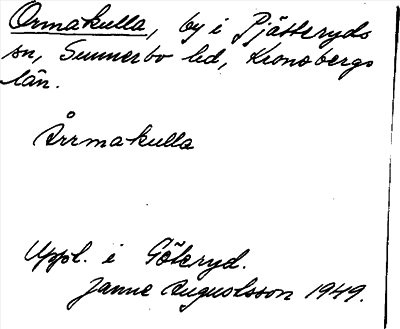 Ormakulla, by i Pjätteryds
sn, Sunnerbo hd, Kronobergs
län.
Årrmakulla
Uppl. i Göteryd.
Janne Augustsson 1949.